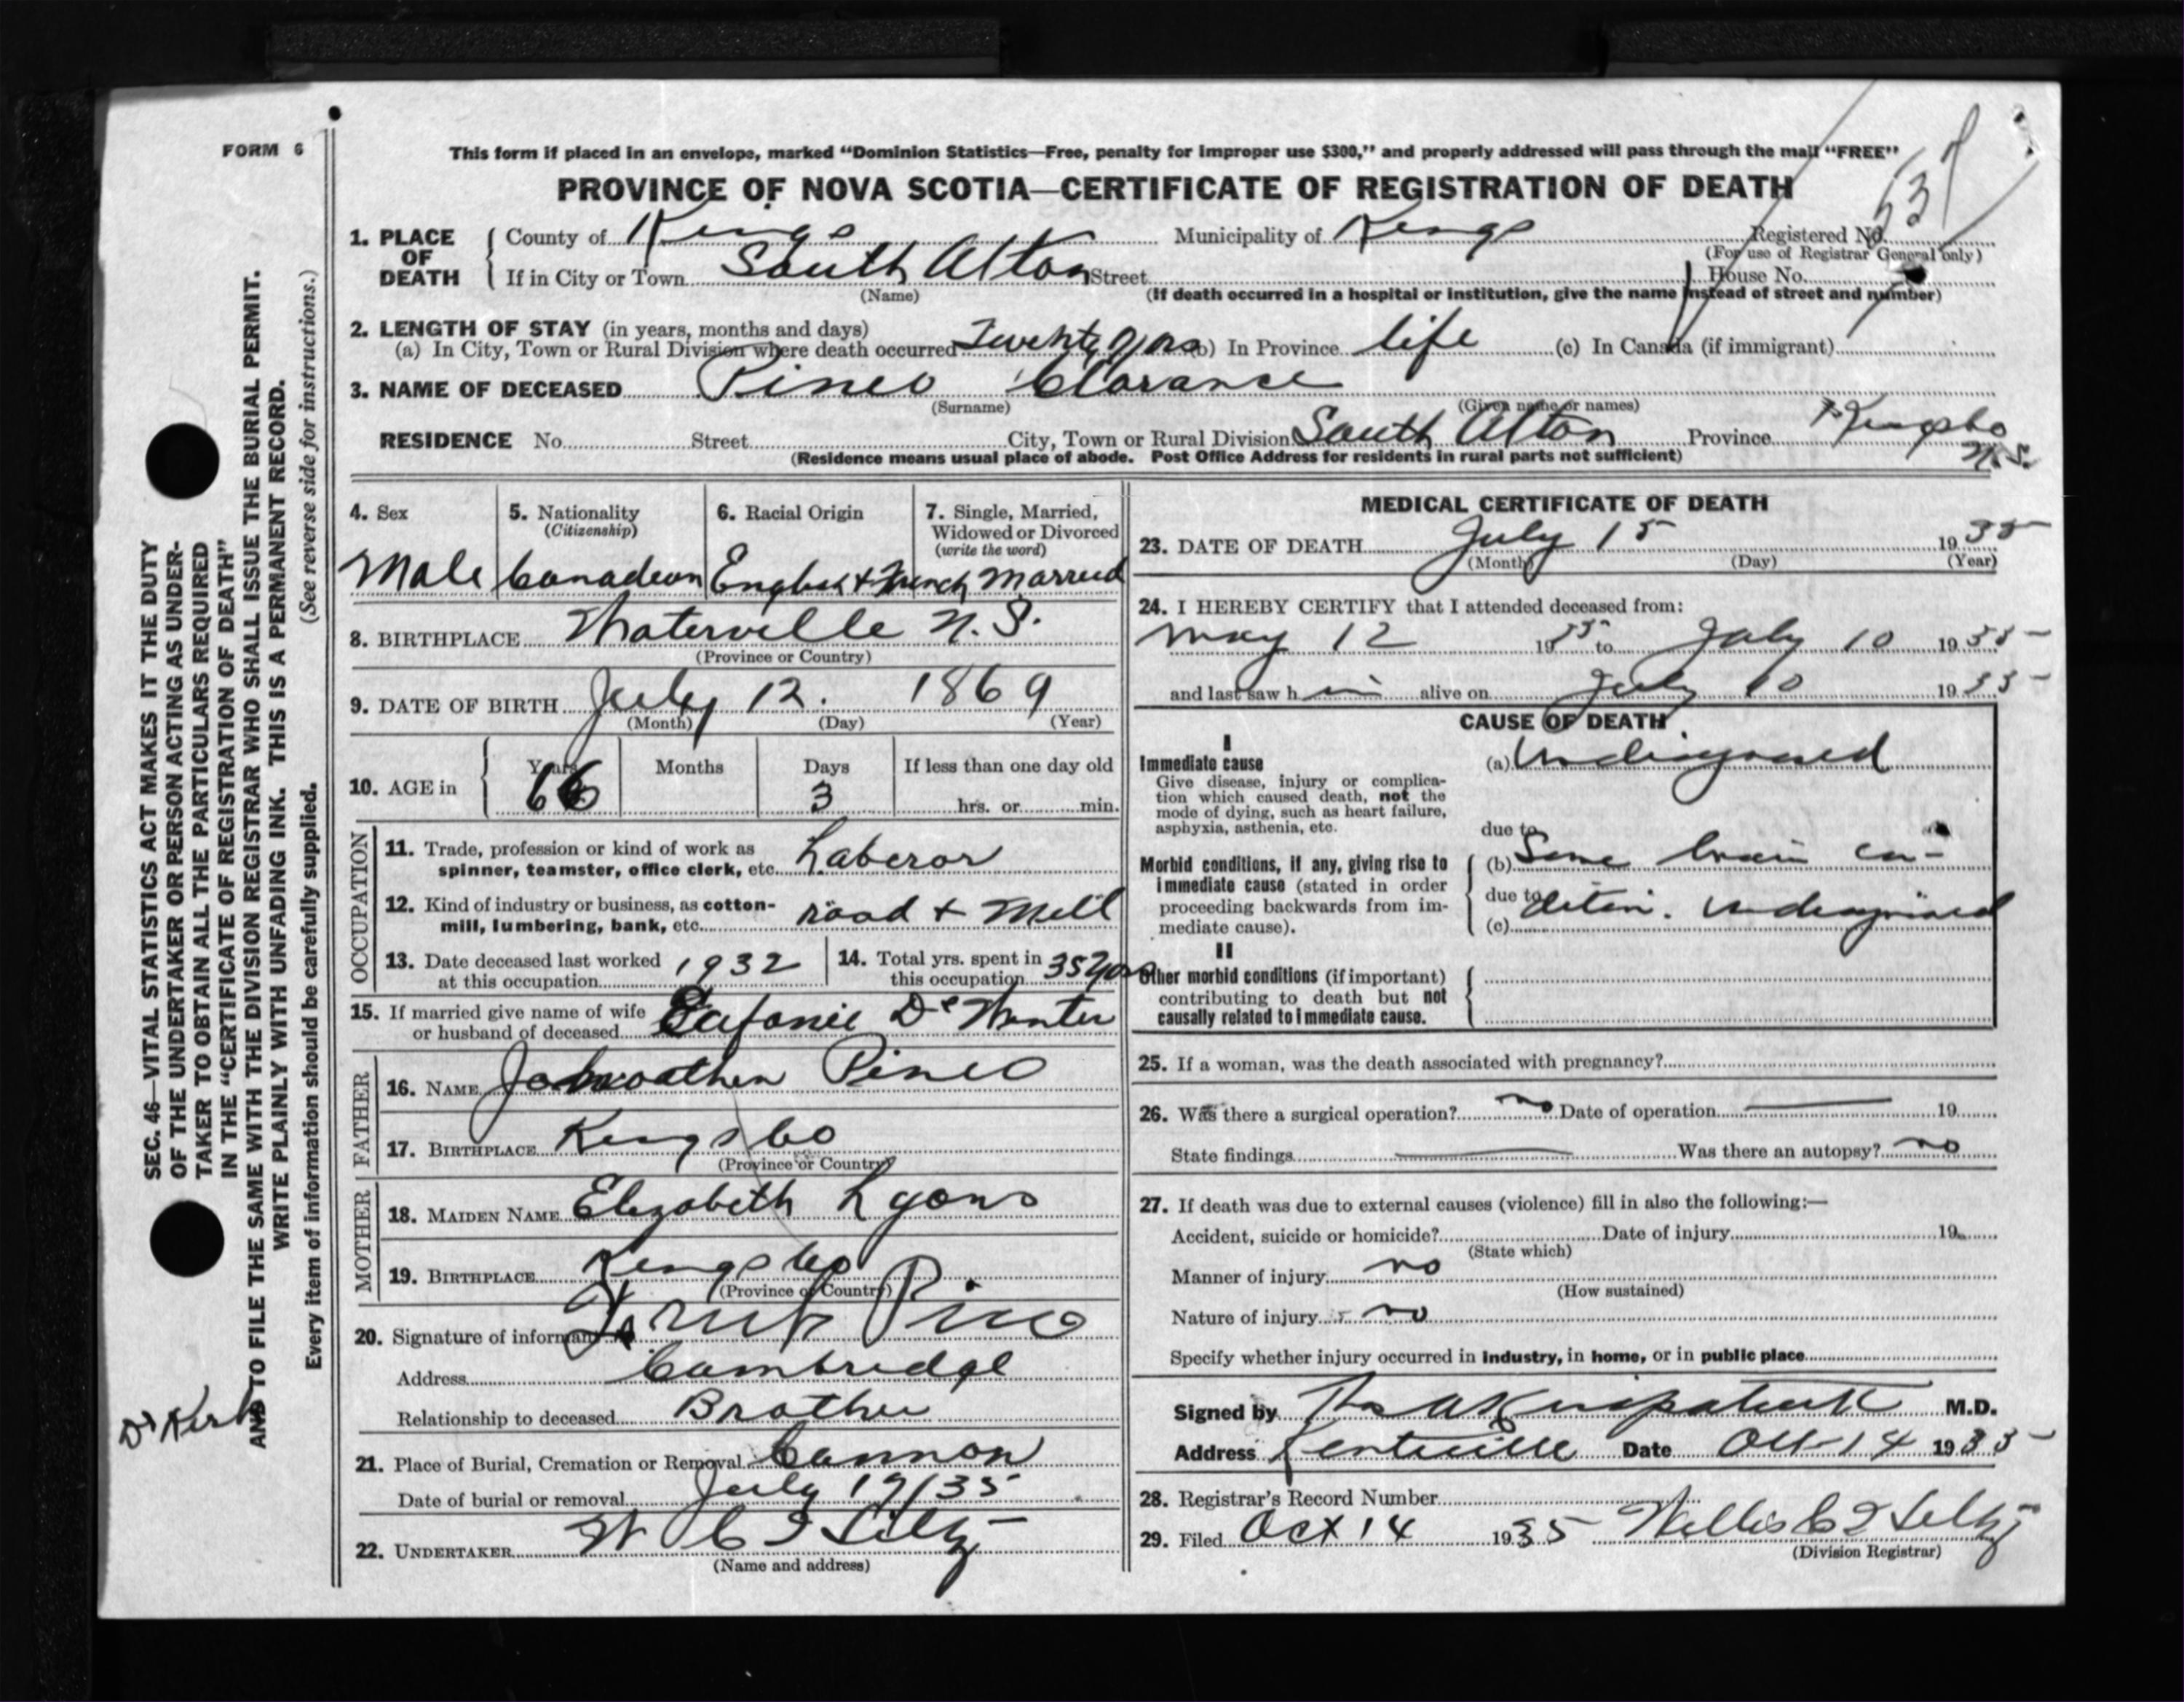 FORM 6
This form if placed in an envelope, marked "Dominion Statistics—Free, penalty for improper use $300," and properly addressed will pass through the mail "FREE"
PROVINCE OF NOVA SCOTIA—CERTIFICATE OF REGISTRATION OF DEATH
1. PLACE OF DEATH
County of Kings Municipality of Kings Registered No. 537
(For use of Registrar General only)
If in City or Town South Alton Street House No.
(Name) (If death occurred in a hospital or institution, give the name instead of street and number)
2. LENGTH OF STAY (in years, months and days)
(a) In City, Town or Rural Division where death occurred Twenty yrs (b) In Province life (c) In Canada (if immigrant)
3. NAME OF DECEASED Pineo Clarance
(Surname) (Given name or names)
RESIDENCE No. Street City, Town or Rural Division South Alton Province Kingsco N.S.
(Residence means usual place of abode. Post Office Address for residents in rural parts not sufficient)
4. Sex
Male
5. Nationality
(Citizenship)
Canadean
6. Racial Origin
English + French
7. Single, Married, Widowed or Divorced
(write the word)
Married
8. BIRTHPLACE Waterville N.S.
(Province or Country)
9. DATE OF BIRTH July 12. 1869
(Month) (Day) (Year)
10. AGE in Years 66 Months Days 3 If less than one day old
hrs. or min.
OCCUPATION
11. Trade, profession or kind of work as
spinner, teamster, office clerk, etc. Laberor
12. Kind of industry or business, as cotton-
mill, lumbering, bank, etc. road + Mill
13. Date deceased last worked
at this occupation 1932
14. Total yrs. spent in
this occupation 35 yrs
15. If married give name of wife
or husband of deceased De Winter
FATHER
16. NAME Pineo
17. BIRTHPLACE Kings Co
(Province or Country)
MOTHER
18. MAIDEN NAME Elezabeth Lyons
19. BIRTHPLACE Kings Co
(Province or Country)
20. Signature of informant Pineo
Address Cambridge
Relationship to deceased Brother
21. Place of Burial, Cremation or Removal Cannon
Date of burial or removal July 17/35
22. UNDERTAKER W C
(Name and address)
MEDICAL CERTIFICATE OF DEATH
23. DATE OF DEATH July 15 1935
(Month) (Day) (Year)
24. I HEREBY CERTIFY that I attended deceased from:
May 12 1935 to July 10 1935
and last saw him alive on July 10 1935
CAUSE OF DEATH
I
Immediate cause
Give disease, injury or complica-
tion which caused death, not the
mode of dying, such as heart failure,
asphyxia, asthenia, etc.
(a) Undiagnosed
due to
Morbid conditions, if any, giving rise to
immediate cause (stated in order
proceeding backwards from im-
mediate cause).
(b) Some brain con-
due to dition. Undiagnosed
(c)
II
Other morbid conditions (if important)
contributing to death but not
causally related to immediate cause.
25. If a woman, was the death associated with pregnancy?
26. Was there a surgical operation? no Date of operation 19
State findings Was there an autopsy? no
27. If death was due to external causes (violence) fill in also the following:—
Accident, suicide or homicide? Date of injury 19
(State which)
Manner of injury no
(How sustained)
Nature of injury no
Specify whether injury occurred in industry, in home, or in public place
Signed by M.D.
Address Kentville Date Oct 14 1935
28. Registrar's Record Number
29. Filed Oct 14 1935 Willis C
(Division Registrar)
SEC. 46—VITAL STATISTICS ACT MAKES IT THE DUTY
OF THE UNDERTAKER OR PERSON ACTING AS UNDER-
TAKER TO OBTAIN ALL THE PARTICULARS REQUIRED
IN THE "CERTIFICATE OF REGISTRATION OF DEATH"
AND TO FILE THE SAME WITH THE DIVISION REGISTRAR WHO SHALL ISSUE THE BURIAL PERMIT.
WRITE PLAINLY WITH UNFADING INK. THIS IS A PERMANENT RECORD.
Every item of information should be carefully supplied. (See reverse side for instructions.)
Dr Kirk